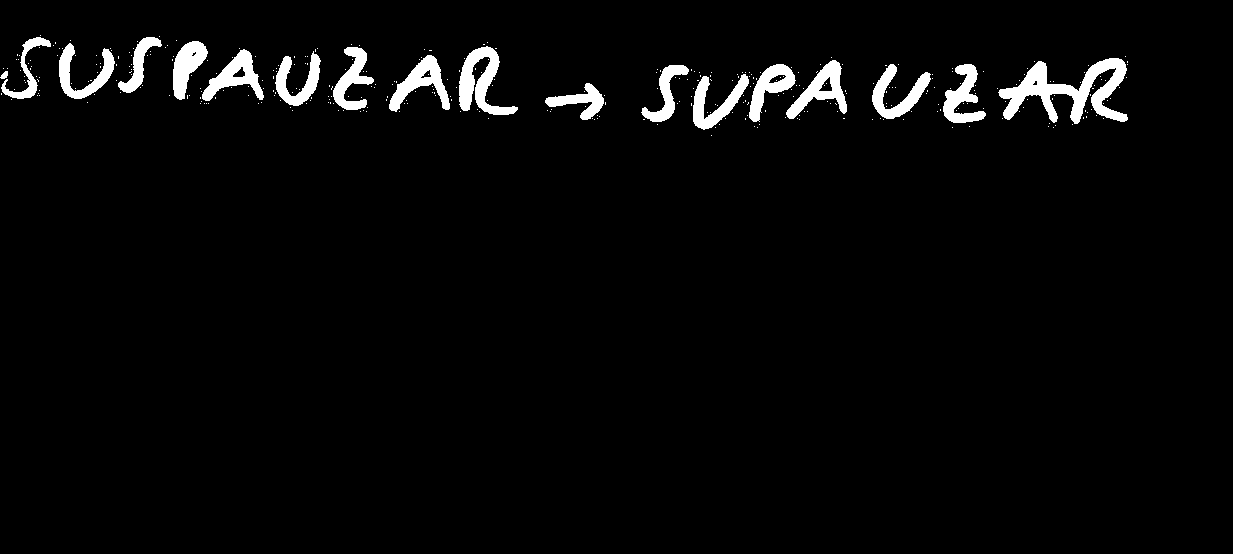 SUSPAUZAR → SUPAUZAR